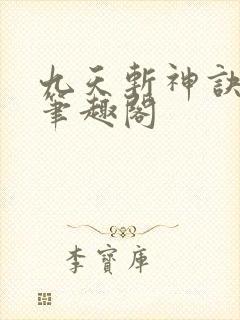 九天斬神訣
筆趣閣
李寶庫